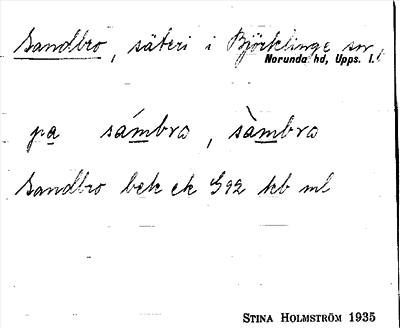 Sandbro, säteri i Björklinge sn,
Norunda hd, Upps. l.
pa sámbro, sàmbro
Sandbro bek ek G92 kb ml
STINA HOLMSTRÖM 1935